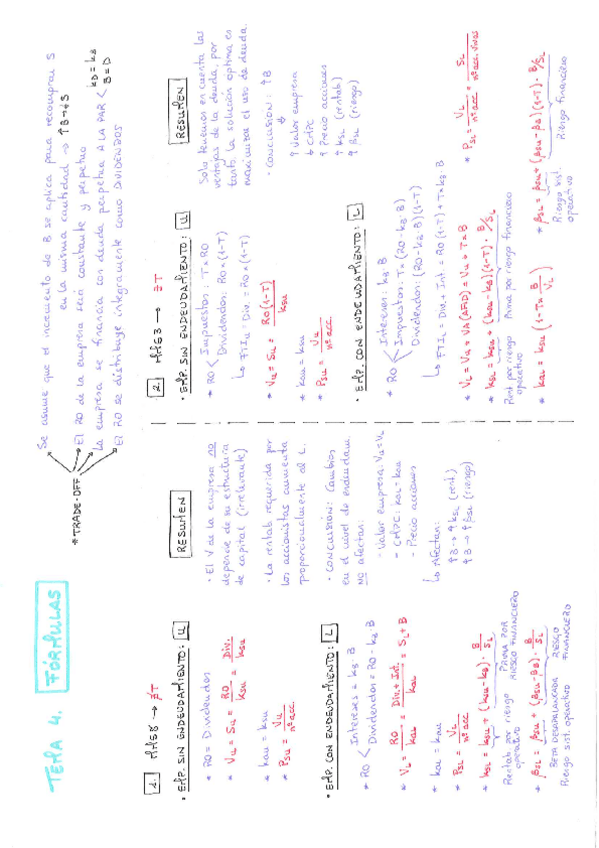 TEMA 4. FORMULAS
* TRADE-OFF
Se asume que el incremento de B se aplica para recomprar S
en la misma cantidad → ↑B→↓S
El RO de la empresa será constante y perpetuo
La empresa se financia con deuda perpetua A LA PAR < kD = kB
B = D
El RO se distribuye íntegramente como DIVIDENDOS
1. MM58 → ∄T
• EMP. SIN ENDEUDAMIENTO: U
* RO = Dividendos
* Vu = Su = RO / ksu = Div. / ksu
* kau = ksu
* Psu = Vu / nº acc.
• EMP. CON ENDEUDAMIENTO: L
* RO < Intereses = kB · B
Dividendos = RO - kB · B
* VL = RO / kaL = Div. + Int. / kaL = SL + B
* kaL = kau
* PSL = VL / nº acc
* kSL = ksu + (ksu - kB) · B / SL
Rentab por riesgo operativo
PRIMA POR RIESGO FINANCIERO
* βSL = βsu + (βsu - βB) · B / SL
BETA DESAPALANCADA
Riesgo sist. operativo
RIESGO FINANCIERO
RESUMEN
• El V de la empresa no
depende de su estructura
de capital (irrelevante)
• La rentab requerida por
los accionistas aumenta
proporcionalmente al L.
• CONCLUSIÓN: Cambios
en el nivel de endeudam.
NO afectan:
- Valor empresa: Vu = VL
- CMPC: kaL = kau
- Precio acciones
↳ Afectan:
↑B → ↑kSL (rent.)
↑B → ↑βSL (riesgo)
2. MM63 → ∃T
• EMP. SIN ENDEUDAMIENTO: U
* RO < Impuestos: T × RO
Dividendos: RO × (1-T)
↳ FTIu = Div. = RO × (1-T)
* Vu = Su = RO(1-T) / ksu
* kau = ksu
* Psu = Vu / nº acc.
• EMP. CON ENDEUDAMIENTO: L
* RO < Intereses: kB · B
Impuestos: T × (RO - kB · B)
Dividendos: (RO - kB · B)(1-T)
↳ FTIL = Div. + Int. = RO (1-T) + T × kB · B
* VL = Vu + VA(AFID) = Vu + T × B
* kSL = ksu + (ksu - kB)(1-T) · B/SL
Rent por riesgo operativo
Prima por riesgo financiero
* kaL = kau (1 - T × B / VL)
* PSL = VL / nº acc = SL / nº acc. vivas
* βSL = βsu + (βsu - βB)(1-T) · B/SL
Riesgo sist. operativo
Riesgo financiero
RESUMEN
Solo tenemos en cuenta las
ventajas de la deuda, por
tanto, la solución óptima es
maximizar el uso de deuda.
• CONCLUSIÓN: ↑B
↑ Valor empresa
↓ CMPC
↑ Precio acciones
↑ kSL (rentab)
↑ βSL (riesgo)